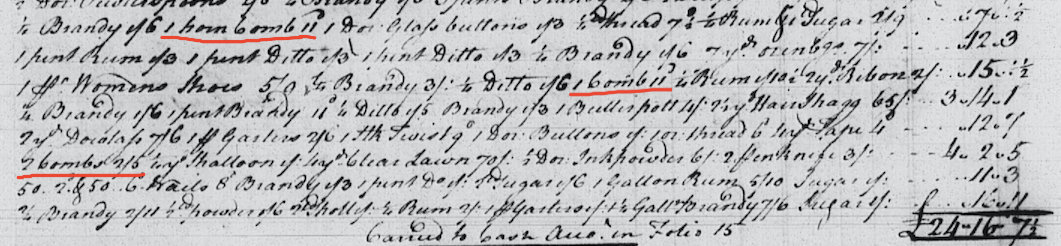 ¼ Brandy 1/6 1 horn Comb 11d 1 Doz: Glass buttons 1/3 ¼ lb thread 7½ ½ Rum & Sugar 2/9 .. 07 . ½
1 pint Rum 1/3 1 pint Ditto 1/3 1 pint Ditto 1/3 ¼ Brandy 1/6 7 yds 7/: .. 12 . 3
1 pr Womens Shoes 5/0 ½ Brandy 3/: ¼ Ditto 1/6 1 Comb 11d ¼ Rum 2 yds Ribon 2/: .. 15 . ½
¼ Brandy 1/6 1 pint Brandy 11d ¼ Ditto 1/5 Brandy 1/3 1 Butter pott 4/: Hair Shagg 65/: 3 . 14 . 1
2 yds 7/6 1 pr Garters 2/6 1 Stk Twist 9d 1 Doz: Buttons 1/: 1 oz: thread 6d Tape 4d .. 12 . 7
2 Combs 2/6 yd Shalloon Clear Lawn 70/: ½ Doz: Inkpowder 6/: 2 penknife 3/: .. 4 . 2 . 5
50 . 2 & 50 . 6 Nails 8d Brandy 1/3 1 pint Do 1/: Sugar 1/6 1 Gallon Rum 5/10 Sugar 1/: .. 11 . 3
Brandy 2/11 powder 1/6 ¼ Rum 2/: 1 pr Garters 1/: 1¼ Gall Brandy 7/6 Sugar 1/: .. 16 . 11
Carried to Cash Acco. in Folio 15 £ 24 - 16 - 7½